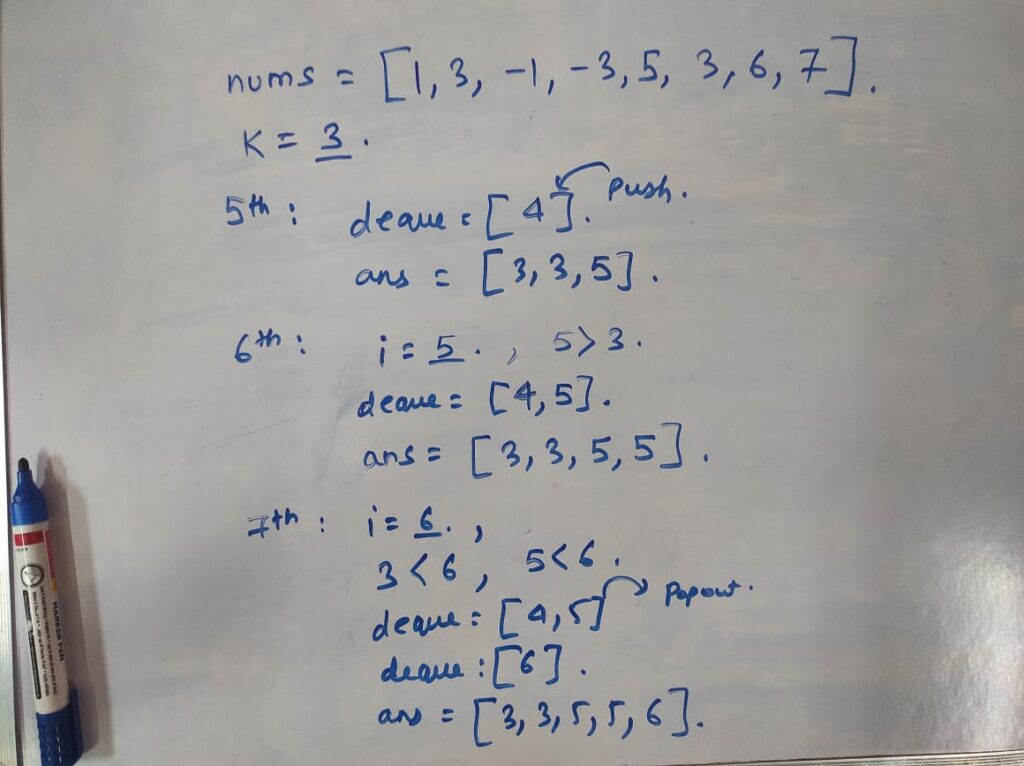 nums = [1, 3, -1, -3, 5, 3, 6, 7].
K = 3.
5th : deque = [4]. push.
ans = [3, 3, 5].
6th : i = 5. , 5>3.
deque = [4, 5].
ans = [3, 3, 5, 5].
7th : i = 6. ,
3<6, 5<6.
deque = [4, 5] Popout.
deque : [6].
ans = [3, 3, 5, 5, 6].
MARKER PEN